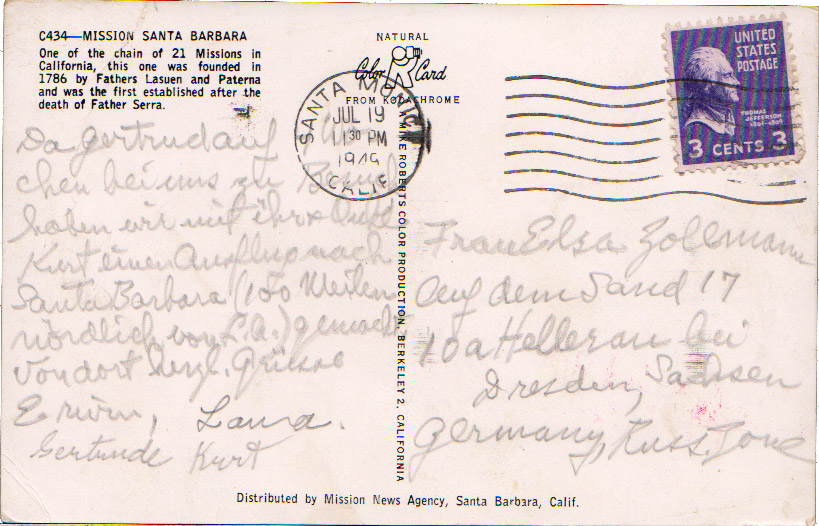 C434—MISSION SANTA BARBARA
One of the chain of 21 Missions in
California, this one was founded in
1786 by Fathers Lasuen and Paterna
and was the first established after the
death of Father Serra.
Da Gertrud auf
chen bei uns zu
haben wir mit ihr &
Kurt einen Ausflug nach
Santa Barbara (150 Meilen
nördlich von L.A.) gemacht
Von dort herzl. Grüsse
Erwin, Laura.
Gertrude Kurt
NATURAL
Color Card
FROM KODACHROME
SANTA MONICA
JUL 19
11 30 PM
1949
CALIF.
MIKE ROBERTS COLOR PRODUCTION, BERKELEY 2, CALIFORNIA
UNITED
STATES
POSTAGE
THOMAS
JEFFERSON
1801-1809
3 CENTS 3
Frau Elsa Zollmann
Auf dem Sand 17
10a Hellerau bei
Dresden, Sachsen
Germany, Russ. Zone
Distributed by Mission News Agency, Santa Barbara, Calif.